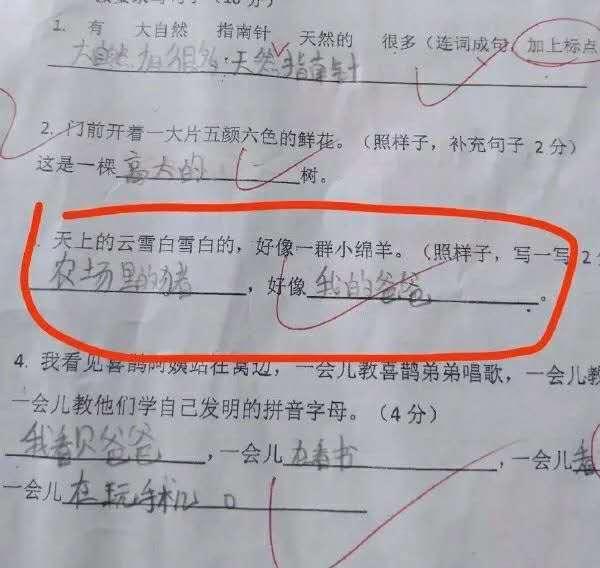 1. 有 大自然 指南针 天然的 很多（连词成句，加上标点
大自然有很多天然指南针
2. 门前开着一大片五颜六色的鲜花。（照样子，补充句子 2分）
这是一棵高大的树。
. 天上的云雪白雪白的，好像一群小绵羊。（照样子，写一写 2
农场里的猪，好像我的爸爸。
4. 我看见喜鹊阿姨站在窝边，一会儿教喜鹊弟弟唱歌，一会儿教
一会儿教他们学自己发明的拼音字母。（4分）
我看见爸爸，一会儿在看书，一会儿
一会儿在玩手机。